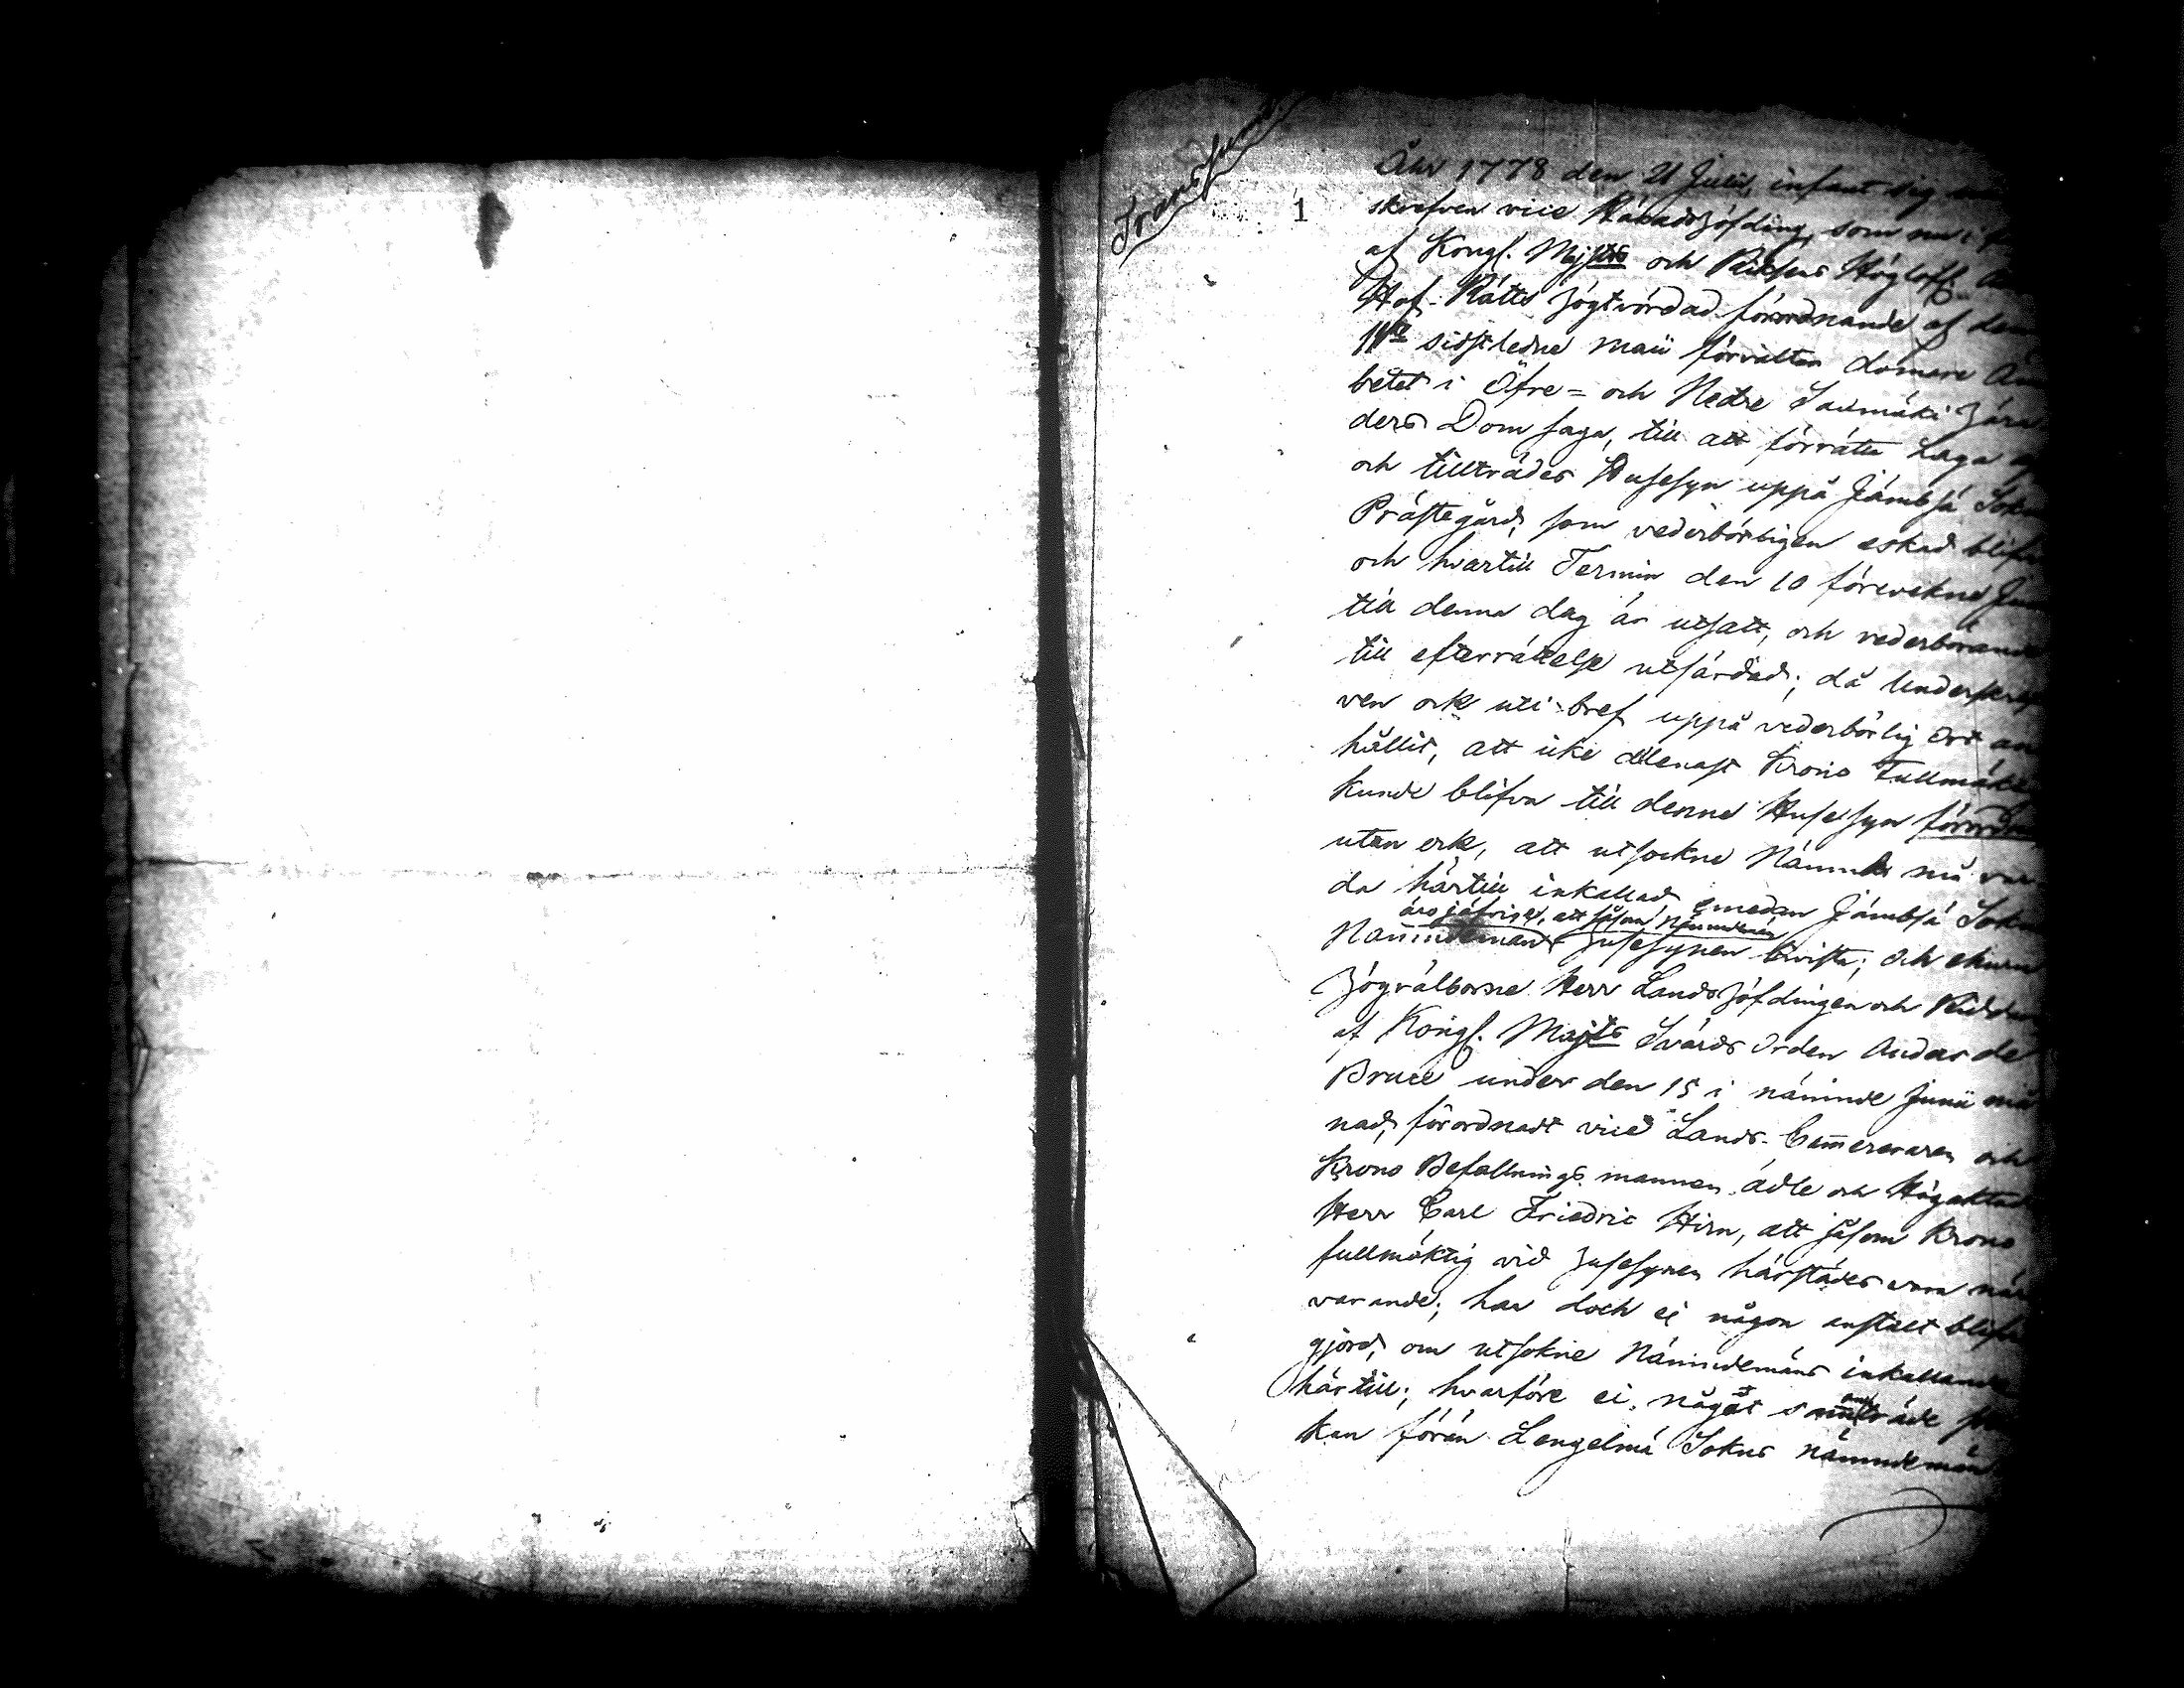 Transsumt
1
Åhr 1778 den 21 Julii, infant sig
skrefven vice Häradshöfding, som nu i
af Kongl. Majsts och Riksens Höglofl.
Hof-Rätts högtvördad förordnande af den
11te sidstledne Maii förvaltar domare Äm
betet i Öfre= och Nedre Saxmäki hära
ders Domsaga, till att förrätta Laga
och tillträdes Husesyn uppå Jämbsä Sokn
Prästegård, som vederbörligen eskad blifvi
och hvartill Termin den 10 förevekne
till denna dag är utsatt, och vederbörande
till efterrättelse utfärdad; då Underskrif
ven ock uti bref uppå vederbörlig Ort an
hållit, att icke allenast Krono Fullmäktig
kunde blifva till denne Husesyn förordna
utan ock, att utsockne Nämnde må var
da härtill inkallad, emedan Jämbsä Sokn
äro jäfvige, att såsom Nämndemän
Nämndeman husesynen bivista; Och ehuru
högvälborne Herr Landshöfdingen och Riddaren
af Kongl. Majts Svärds Orden Anders de
Bruce under den 15 i nämnde Junii må
nad, förordnadt vice Lands-Camereraren och
Krono Befallnings mannen ädle och Högaktad
Herr Carl Friedric Hirn, att såsom Krono
fullmäktig vid husesynen härstädes vara när
varande; har doch ej någon anstalt blifvi
gjord, om utsokne Nämndemäns inkallande
härtill; hvarföre ej något sammanträde
kan förän Lengelmä Sokns nämndemän